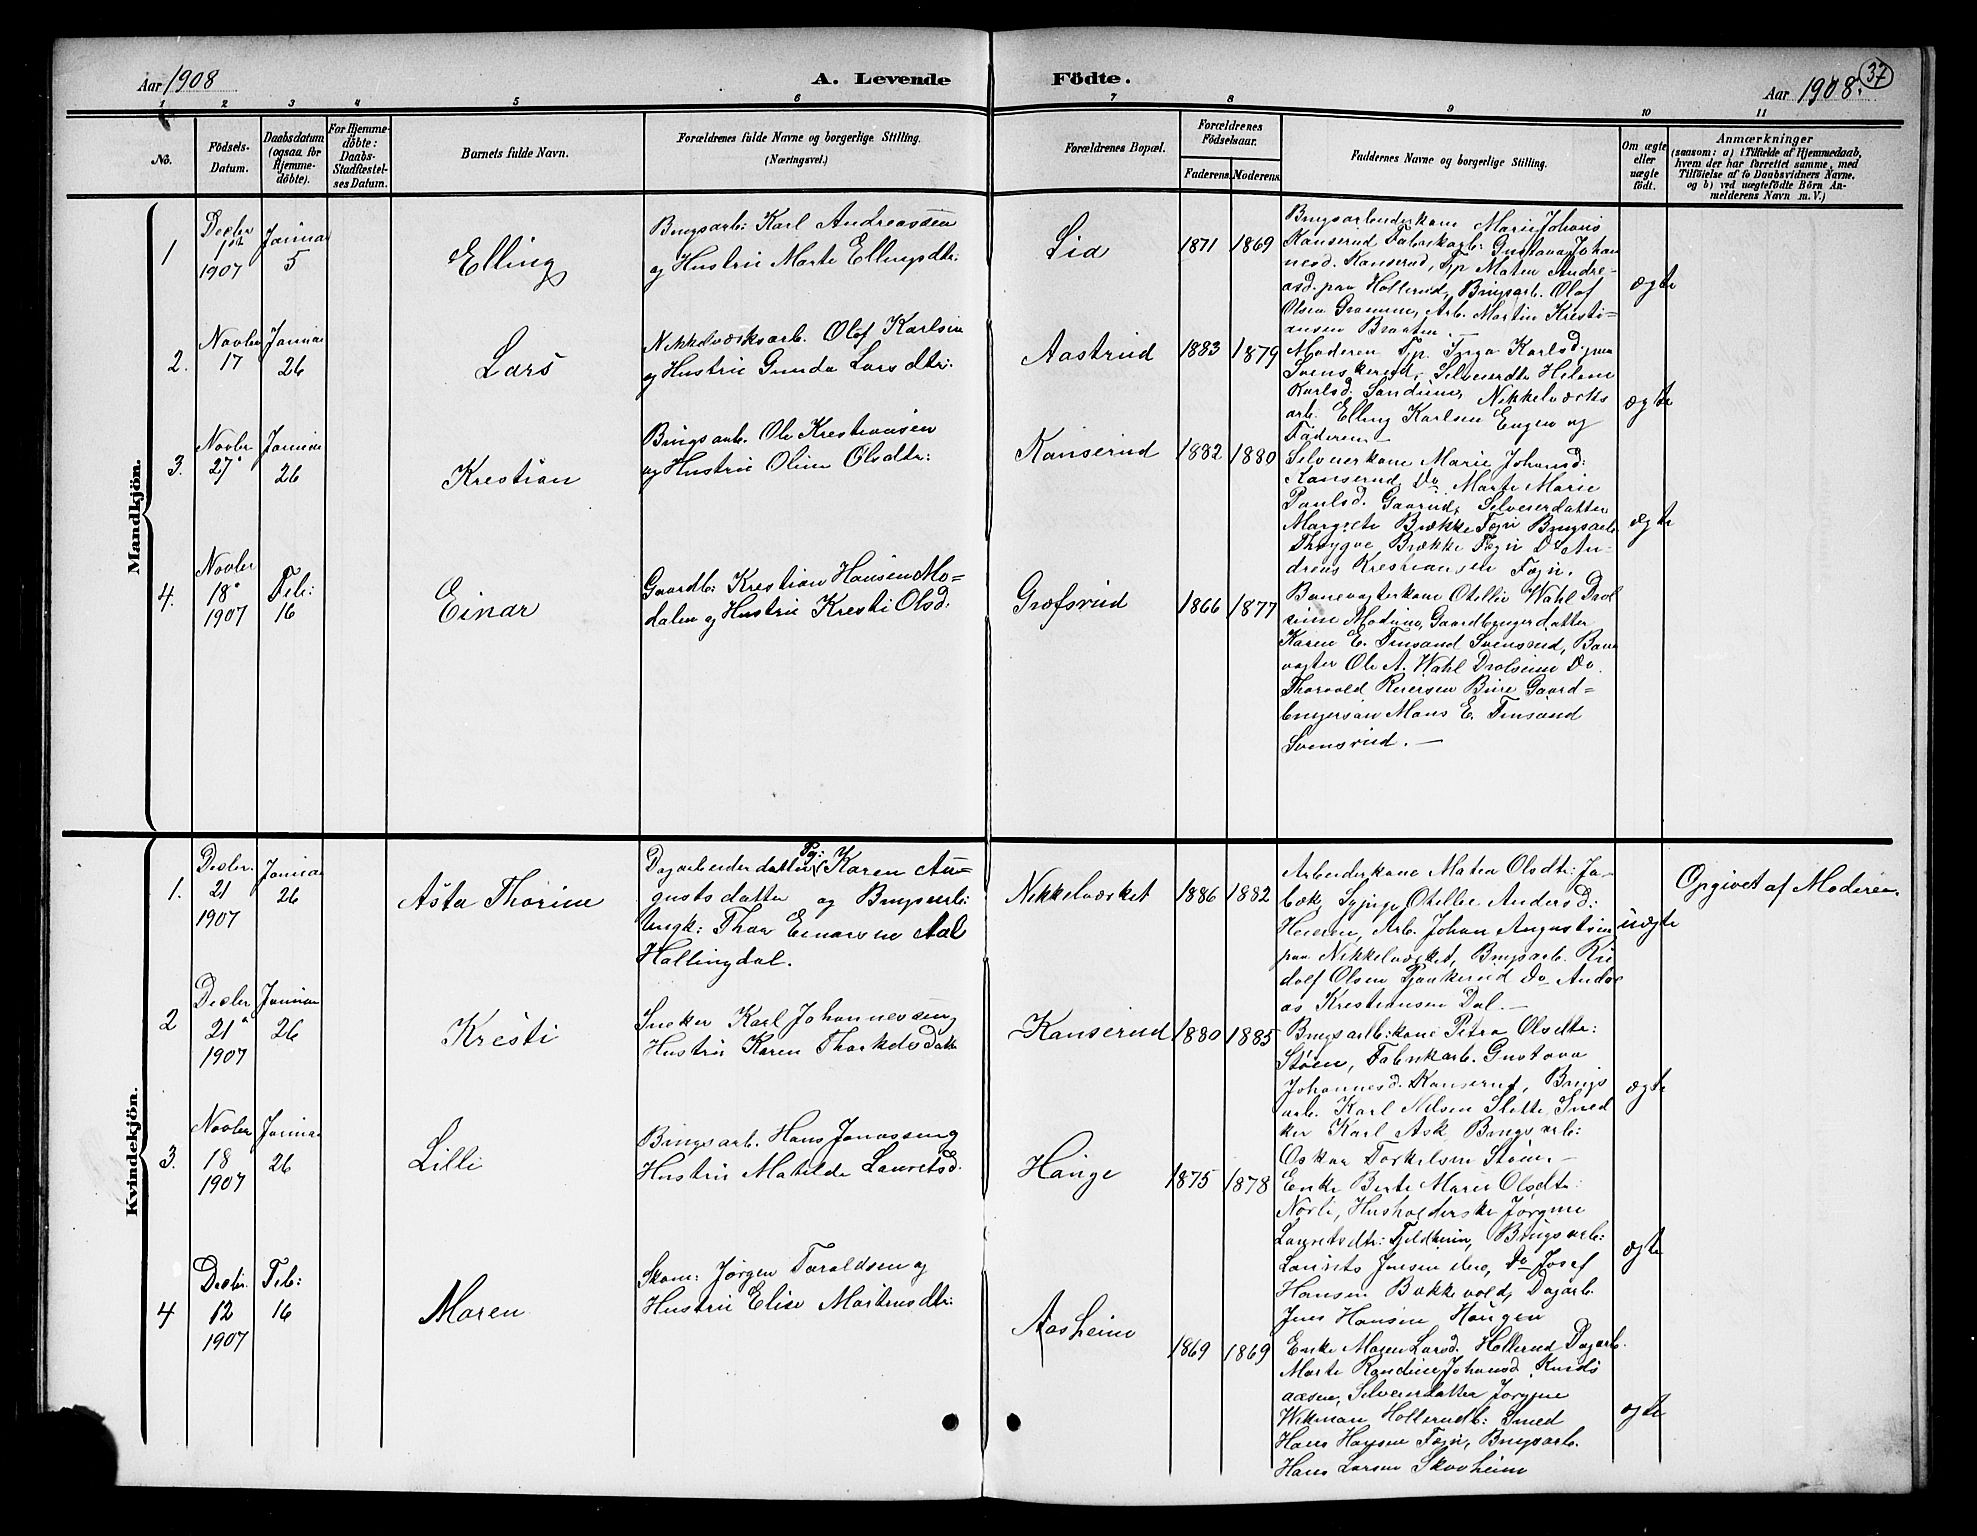 Aar 1908
A. Levende Födte.
Aar 1908.
37
1 2 3 4 5 6 7 8 9 10 11
No.
Födsels-
Datum.
Daabsdatum
(ogsaa for
Hjemme-
döbte).
For Hjemme-
döbte:
Daabs-
Stadfæstel-
ses Datum.
Barnets fulde Navn.
Forældrenes fulde Navne og borgerlige Stilling.
(Næringsvei.)
Forældrenes Bopæl.
Forældrenes
Födselsaar.
Faderens. Moderens.
Faddernes Navne og borgerlige Stilling.
Om ægte
eller
uægte
födt.
Anmærkninger
(saasom: a) i Tilfælde af Hjemmedaab,
hvem der har forrettet samme, med
Tilföielse af to Daabsvidners Navne.
og b) ved uægtefödte Börn An-
melderens Navn m. V.)
Mandkjön.
1
Decbr
1ste
1907
Januar
5
Elling
Brugsarb: Karl Andreassen
og Hustru Marte Ellingsdtr:
Lia
1871
1869
Brugsarbeiderkone Marie Johans
Kanserud Fabrikarb: Gustava Johan
nesd. Kanserud, Tjp Maten Andre-
asd. paa Hollerud, Brugsarb. Olof
Olsen Grommen, Arb. Martin Kristi-
ansen Braaten.
ægte
2.
Novbr
17
Januar
26
Lars
Nikkelværksarb. Olof Karlsen
og Hustru Gunda Larsdtr:
Aastrud
1883
1879
Moderen Tjp. Inga Karlsd. paa
Svenskerud, Selveierdtr Helene
Karlsd. Sandum, Nikkelværks
arb. Elling Karlsen Engen og
Faderen
ægte
3.
Novbr
27
Januar
26
Krestian
Brugsarb. Ole Krestiansen
og Hustru Oline Olsdtr:
Kanserud
1882
1880
Selveierkone Marie Johansd:
Kanserud, Do Marte Marie
Paulsd. Gaarud, Selveierdatter
Margrete Brække Fogn Brugsarb
Thrygve Brække Fogn Do An-
dreas Krestiansen Fogn.
ægte
4.
Novbr
18
1907
Feb:
16
Einar
Gaardb: Krestian Hansen Mo-
dalen og Hustru Kresti Olsd.
Grofsrud
1866
1877
Banevogterkone Otellie Wahl Drol
seim Modum, Gaardbrugerdatter
Karen E. Tinsand Svensrud, Bane
vogter Ole A. Wahl Drolseim Do
Thorvald Reiersen Bure Gaard-
brugersøn Mons E. Tinsand
Svensrud.
Kvindekjön.
1.
Decbr.
21
1907
Januar
26
Asta Thorine
Dagarbeiderdatter Pg: Karen Au-
gustsdatter og Brugsarb:
Ungk: Thor Einarsen Aal
Hallingdal.
Nikkelværket
1886
1882
Arbeiderkone Maten Olsdtr: Ja-
bæk, Sypige Otellie Andersd:
Heieren, Arb. Johan Augustsen
paa Nikkelværket, Brugsarb. Ru
dolf Olsen Pjaakerud Do Andre
as Krestiansen Dal.
uægte
Opgivet af Moderen.
2
Decbr
21
1907
Januar
26
Kresti
Snekker Karl Johannessen og
Hustru Karen Thorkelsdatter
Kanserud
1880
1885
Brugsarb:kone Petra Olsdtr:
Støen, Fabrikarb. Gustava
Johannesd. Kanserud, Brugs
arb. Karl Nilsen Slette, Sned
ker Karl Ask, Brugsarb:
Oskar Torkelsen Støen.
ægte
3.
Novbr
18
1907
Januar
26
Lilli
Brugsarb. Hans Jonassen og
Hustru Matilde Lauretsd.
Hauge
1875
1878
Enke Berte Marie Olsdtr:
Norli, Husholderske Jørgine
Lauretsdtr: Fjeldheim, Brugsarb:
Laurits Jensen ibid, Do Josef
Hansen Bakkevold, Dagarb.
Jens Hansen Haugen
ægte
4
Decbr.
12
1907
Feb:
16
Maren
Skom: Jørgen Taraldsen og
Hustru Elise Martinsdtr:
Aasheim
1869
1869
Enke Maren Larsd. Hollerud Dagarb.
Marte Randine Johansd. Knuds
aasen, Selveierdatter Jørgine
Wikman Hollerudb: Smed
Hans Hansen Fogn, Brugsarb.
Hans Larsen Skovheim
ægte